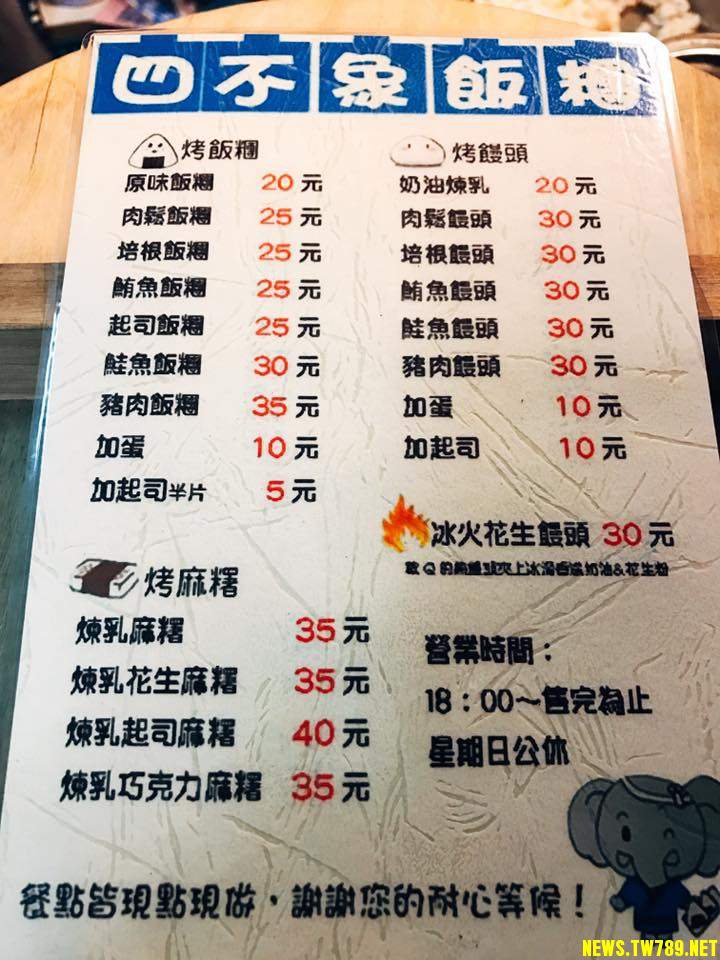 四不象飯糰
烤飯糰
原味飯糰 20元
肉鬆飯糰 25元
培根飯糰 25元
鮪魚飯糰 25元
起司飯糰 25元
鮭魚飯糰 30元
豬肉飯糰 35元
加蛋 10元
加起司半片 5元
烤饅頭
奶油煉乳 20元
肉鬆饅頭 30元
培根饅頭 30元
鮪魚饅頭 30元
鮭魚饅頭 30元
豬肉饅頭 30元
加蛋 10元
加起司 10元
冰火花生饅頭 30元
軟Q的饅頭夾上冰滑香濃奶油&花生粉
烤麻糬
煉乳麻糬 35元
煉乳花生麻糬 35元
煉乳起司麻糬 40元
煉乳巧克力麻糬 35元
營業時間：
18：00～售完為止
星期日公休
餐點皆現點現做，謝謝您的耐心等候！
NEWS.TW789.NET